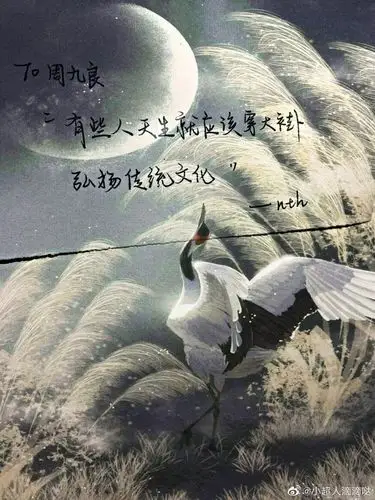 To 周九良
“有些人天生就应该穿大褂
弘扬传统文化”
—nth
@小超人滴滴哒